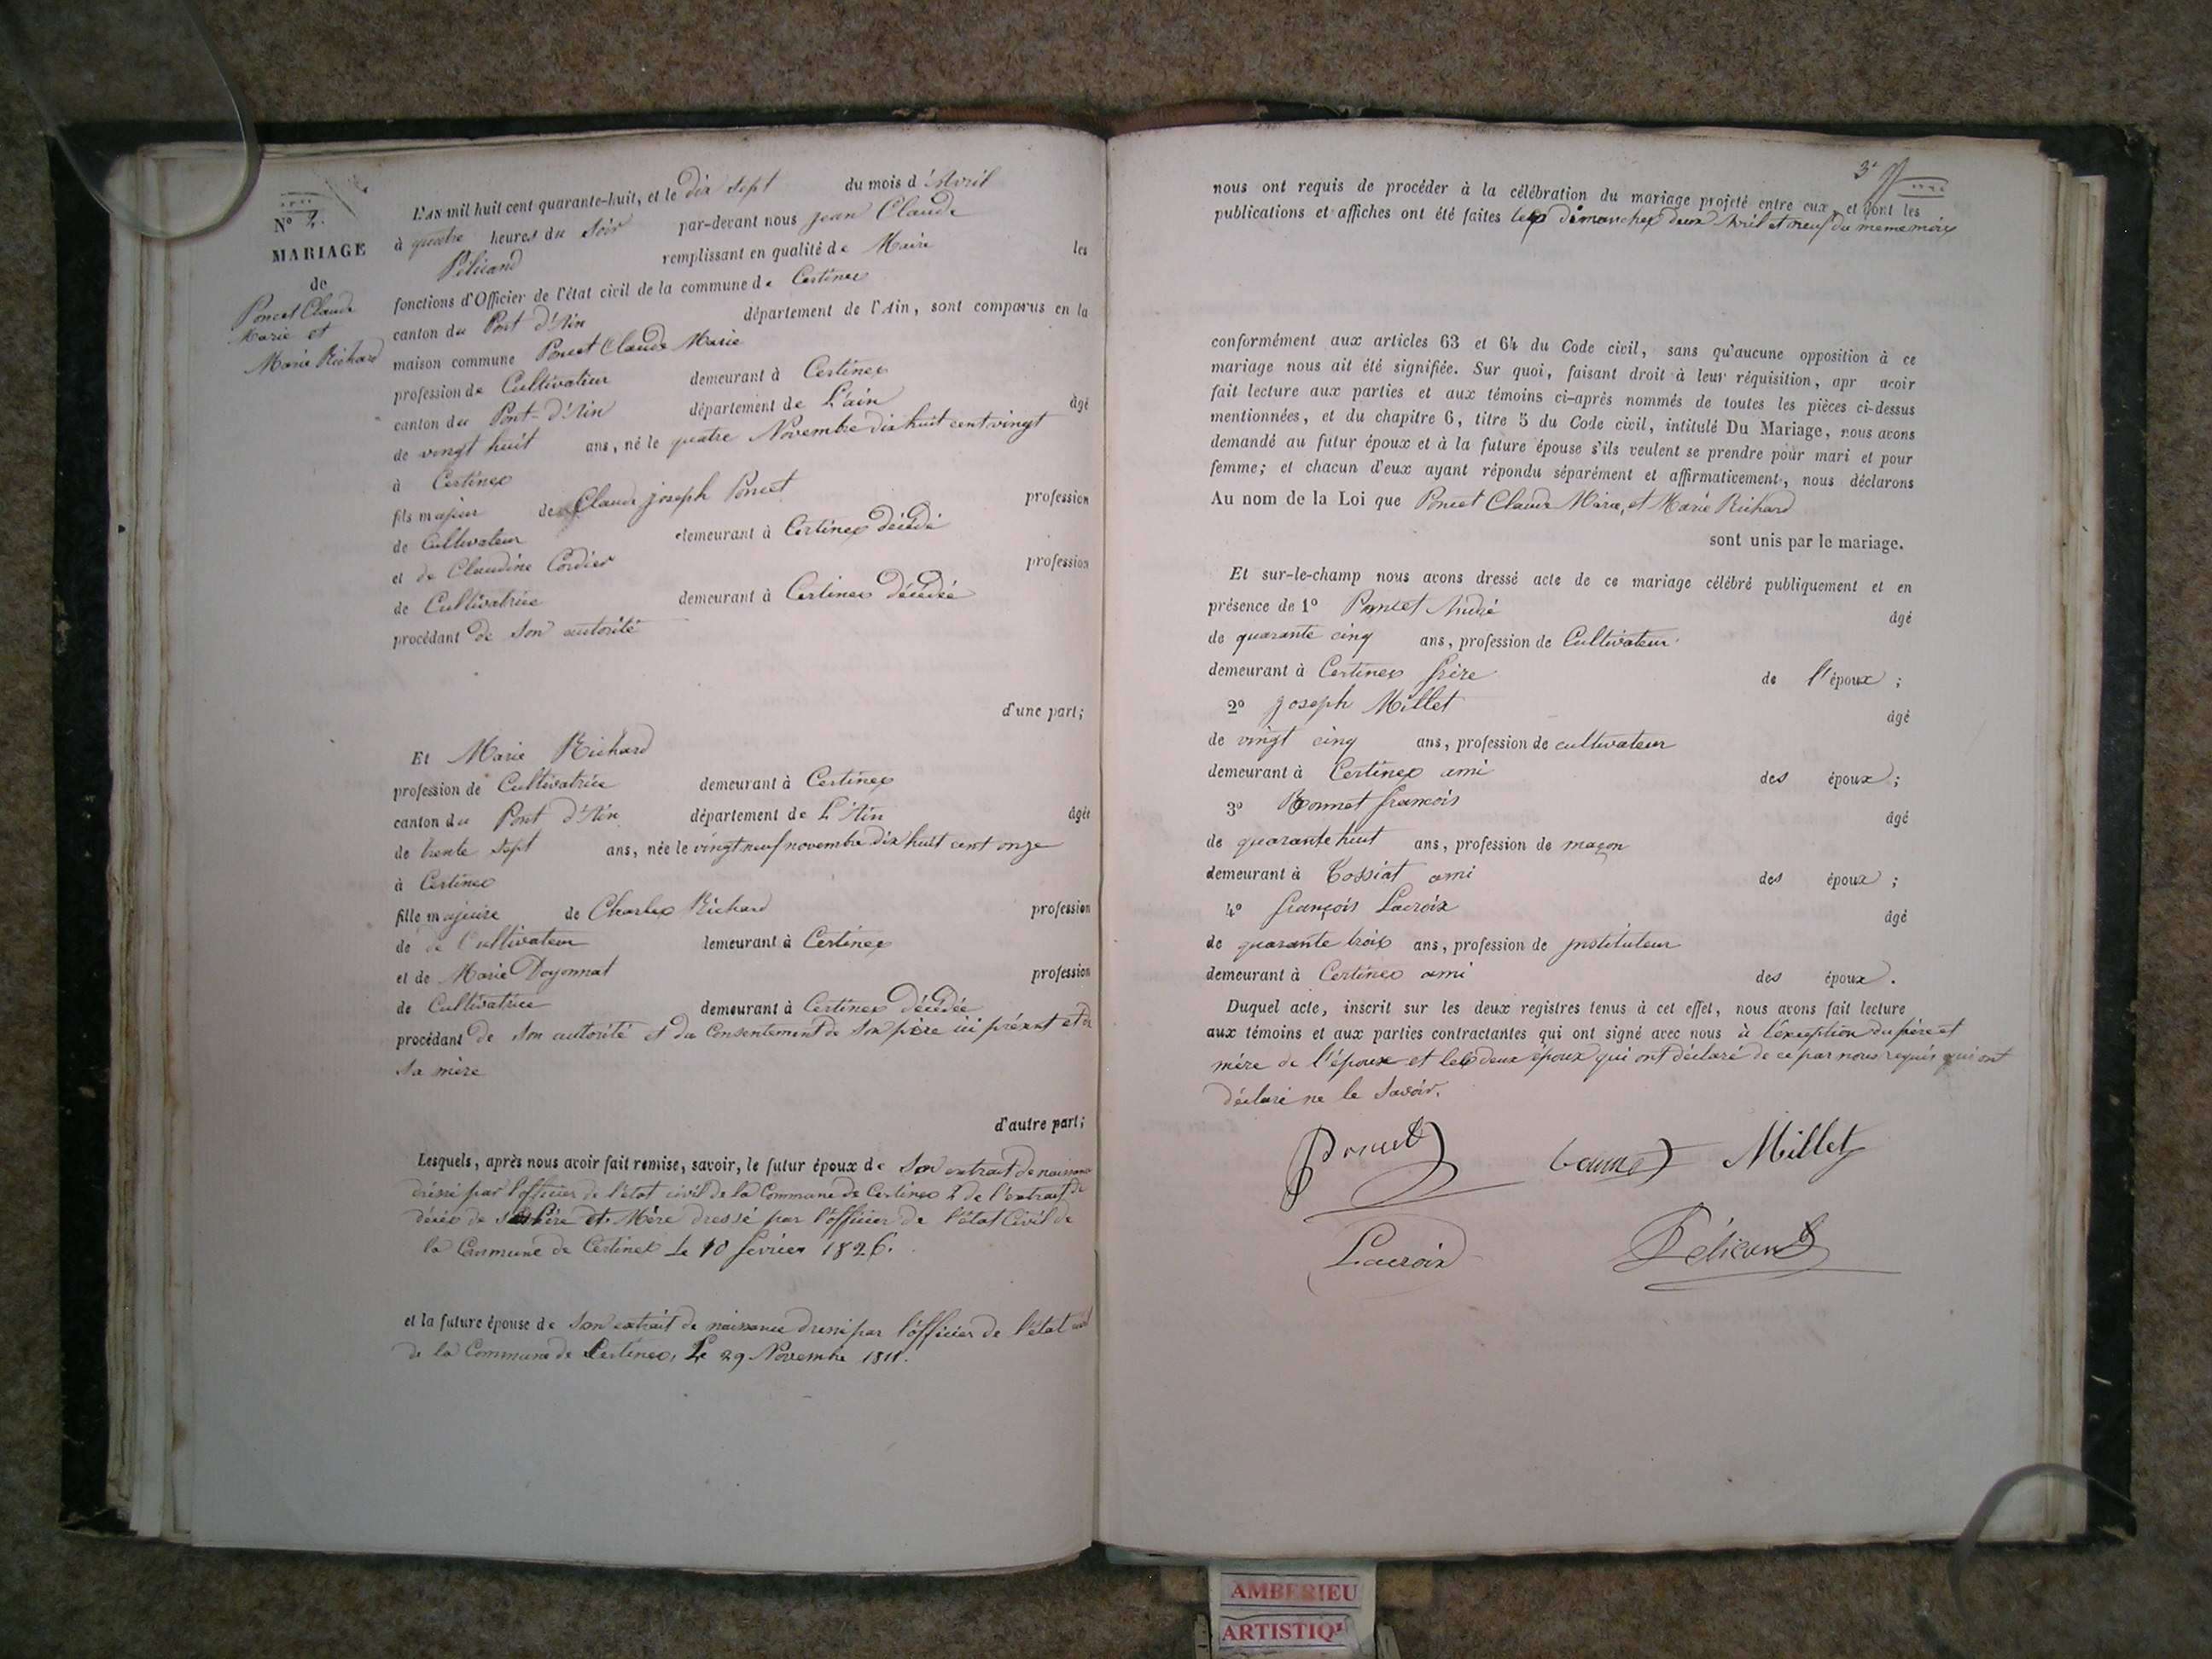 N° 2.
MARIAGE
de
Poncet Claude
Marie et
Marie Richard
L'AN mil huit cent quarante-huit, et le dix sept du mois d'Avril
à quatre heures du Soir par-devant nous jean Claude
Pélicand remplissant en qualité de Maire les
fonctions d'Officier de l'état civil de la commune de Certines
canton du Pont d'Ain département de l'Ain, sont comparus en la
maison commune Poncet Claude Marie
profession de Cultivateur demeurant à Certines
canton du Pont-d'Ain département de L'ain âgé
de vingt huit ans, né le quatre Novembre dix huit cent vingt
à Certines
fils majeur de Claude joseph Poncet profession
de Cultivateur demeurant à Certines décédé
et de Claudine Cordier profession
de Cultivatrice demeurant à Certines décédée
procédant de son autorité
d'une part;
Et Marie Richard
profession de Cultivatrice demeurant à Certines
canton du Pont d'Ain département de L'Ain âgée
de trente sept ans, née le vingt neuf novembre dix huit cent onze
à Certines
fille majeure de Charles Richard profession
de de Cultivateur demeurant à Certines
et de Marie Doyonnat profession
de Cultivatrice demeurant à Certines décédée
procédant de son autorité et du Consentement de son père ici présent et de
sa mère
d'autre part;
Lesquels, après nous avoir fait remise, savoir, le futur époux de son extrait de naissance
dressé par l'officier de l'état civil de la Commune de Certines & de l'extrait de
décès de ses Père et Mère dressé par l'officier de l'état Civil de
la Commune de Certines Le 10 février 1826.
et la future épouse de son extrait de naissance dressé par l'officier de l'état civil
de la Commune de Certines, Le 29 Novembre 1811.
3e
nous ont requis de procéder à la célébration du mariage projeté entre eux, et dont les
publications et affiches ont été faites les dimanches deux Avril et neuf du meme mois
conformément aux articles 63 et 64 du Code civil, sans qu'aucune opposition à ce
mariage nous ait été signifiée. Sur quoi, faisant droit à leur réquisition, apr avoir
fait lecture aux parties et aux témoins ci-après nommés de toutes les pièces ci-dessus
mentionnées, et du chapitre 6, titre 5 du Code civil, intitulé Du Mariage, nous avons
demandé au futur époux et à la future épouse s'ils veulent se prendre pour mari et pour
femme; et chacun d'eux ayant répondu séparément et affirmativement, nous déclarons
Au nom de la Loi que Poncet Claude Marie, et Marie Richard
sont unis par le mariage.
Et sur-le-champ nous avons dressé acte de ce mariage célébré publiquement et en
présence de 1° Poncet André âgé
de quarante cinq ans, profession de Cultivateur
demeurant à Certines frère de l'époux;
2° joseph Millet âgé
de vingt cinq ans, profession de cultivateur
demeurant à Certines ami des époux;
3° Bonnet françois âgé
de quarante huit ans, profession de maçon
demeurant à Tossiat ami des époux;
4° françois Lacroix âgé
de quarante trois ans, profession de jnstituteur
demeurant à Certines ami des époux.
Duquel acte, inscrit sur les deux registres tenus à cet effet, nous avons fait lecture
aux témoins et aux parties contractantes qui ont signé avec nous à l'exception du père et
mère de l'épouse et les deux époux qui ont déclaré de ce par nous requis qui ont
déclaré ne le savoir.
Poncet bonnet Millet
Lacroix Pélicand
AMBERIEU
ARTISTIQ